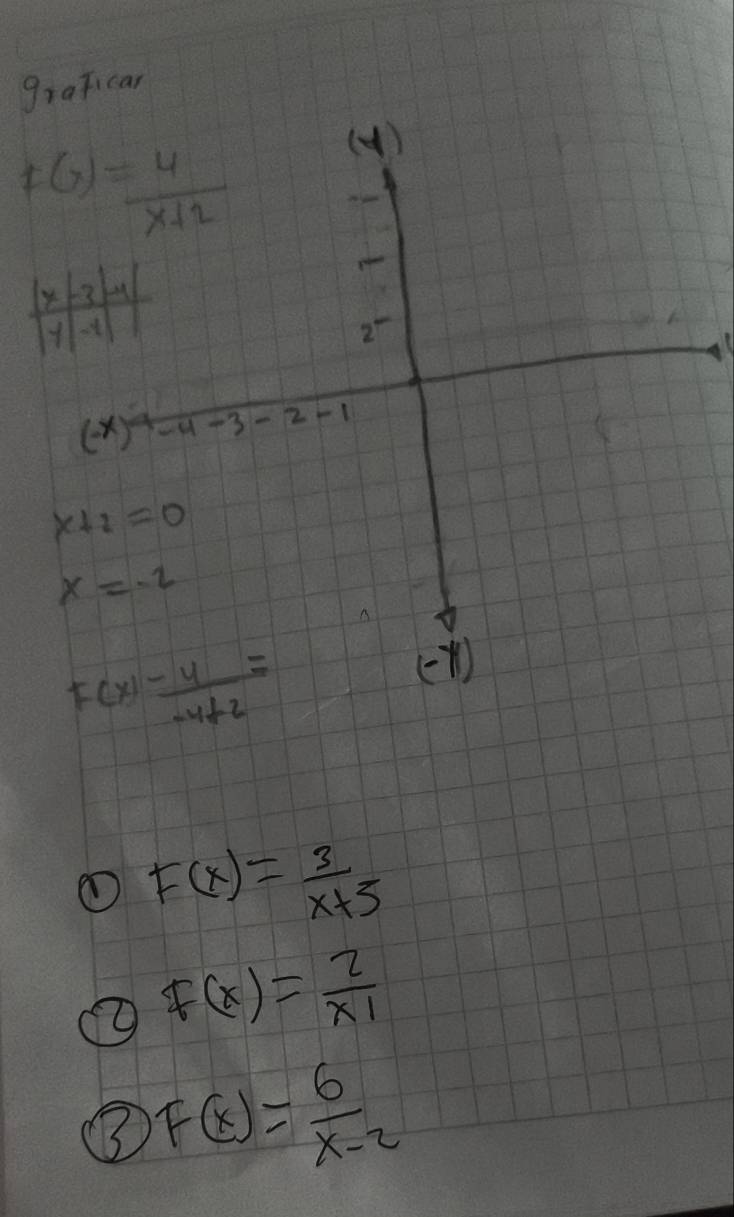 graficar
F(x) = 4/x+2
(y)
x -3 -4
y -4
2
(-x) -4 -3 -2 -1
x+2 = 0
x = -2
F(x) - 4/-4+2 =
(-y)
① F(x) = 3/x+5
② F(x) = 2/x1
③ F(x) = 6/x-2